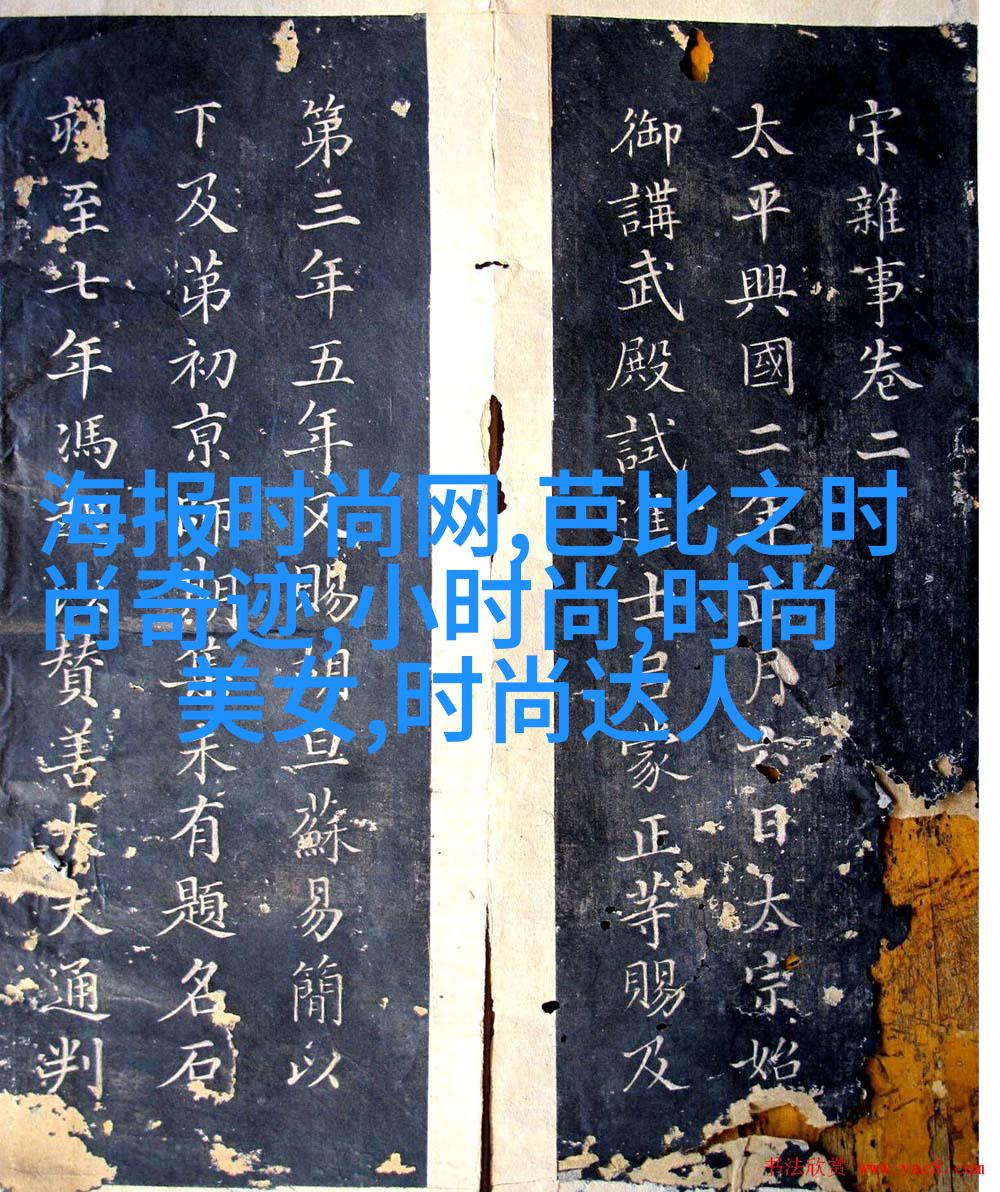 宋雜事卷二
太平興國二年正月六日太宗始
御講武殿試進士呂蒙正等賜及
第三年五年又賜胡旦蘇易簡以
下及苐初亰師期集未有題名石
至七年馮以贊善大夫通判
海报时尚网,芭比之时
尚奇迹,小时尚,时尚
美女,时尚达人
书法欣赏 www.yac8.com